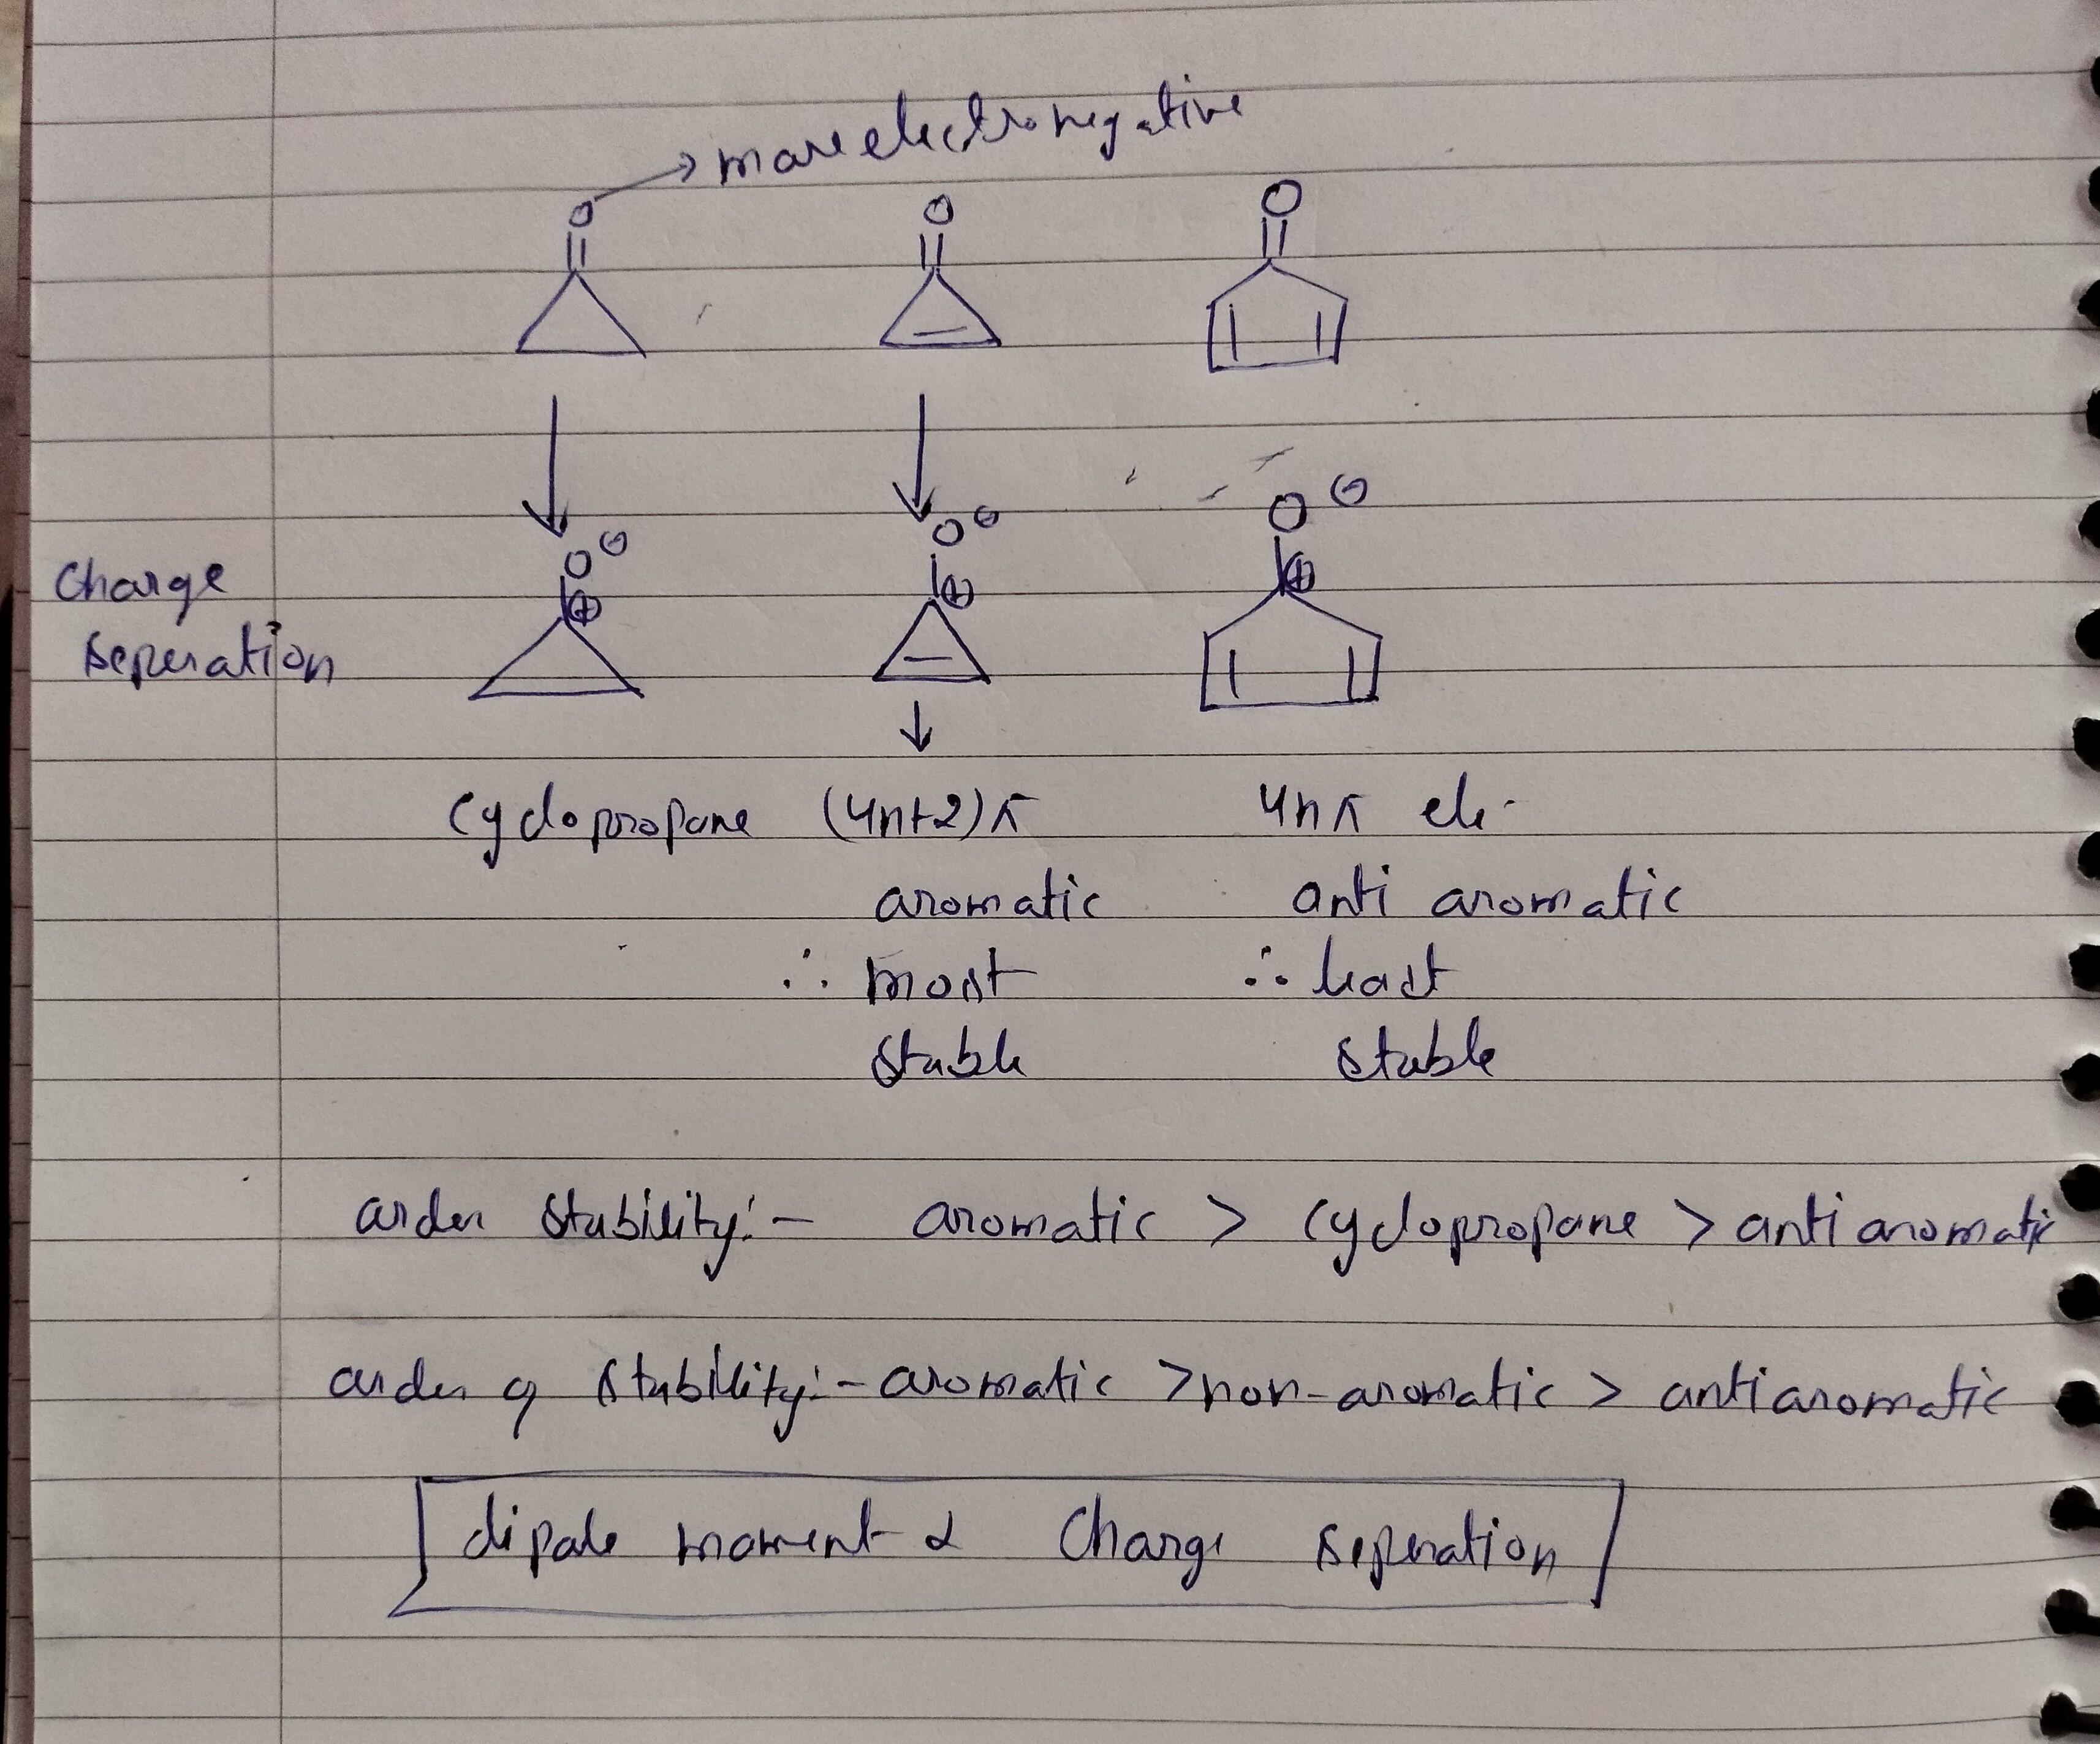 → more electronegative
O O O
O⊖ O⊖ O⊖
⊕ ⊕ ⊕
Charge
seperation
Cyclopropane (4n+2)π 4nπ ele-
aromatic anti aromatic
∴ most ∴ least
stable stable
order stability:- aromatic > cyclopropane > anti aromatic
order of stability:- aromatic > non-aromatic > antiaromatic
dipole moment α Charge seperation